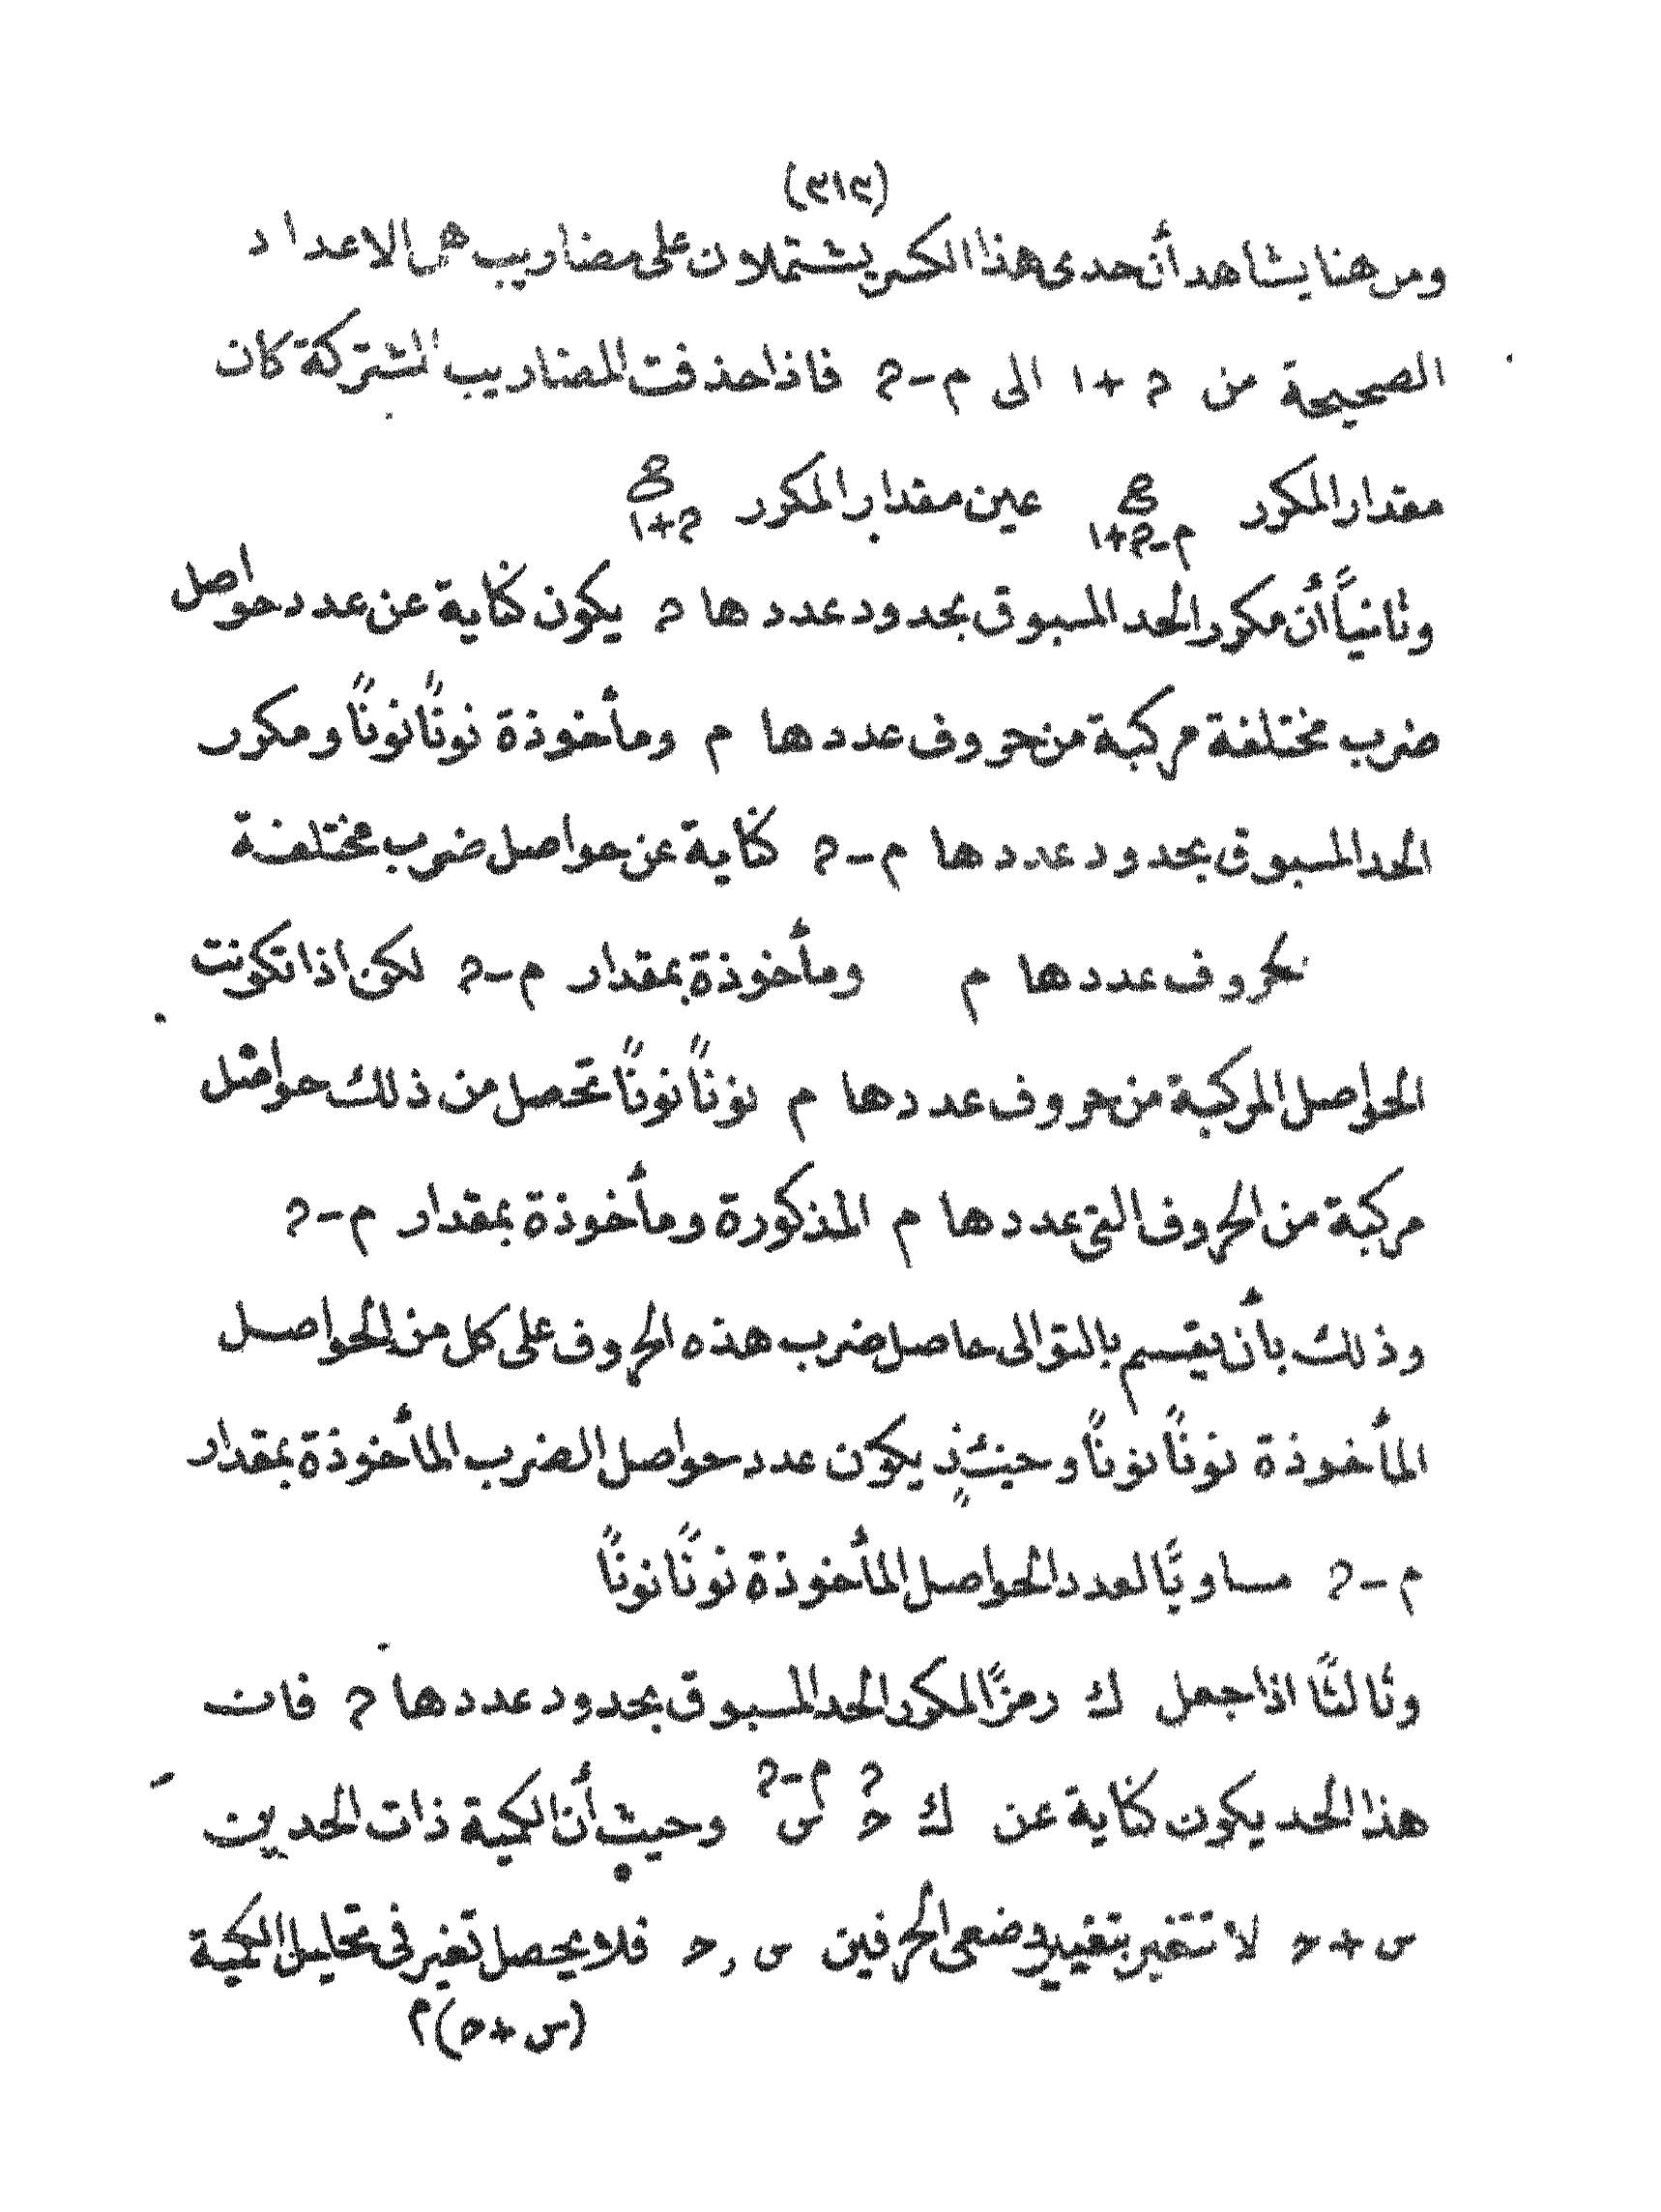 (٣١٩)
ومن هنا يشاهد أن حدى هذا الكسر يشتملان على مضاريب هى الاعداد
الصحيحة من ﮊ + ١ الى م - ﮊ فاذا حذفت المضاريب المشتركة كان
مقدار المكرر ع م-ﮊ+١ عين مقدار المكرر ع ﮊ+١
وثانيًا أن مكرر الحد المسبوق بحدود عددها ﮊ يكون كناية عن عدد حواصل
ضرب مختلفة مركبة من حروف عددها م ومأخوذة نونًا نونًا ومكرر
الحد المسبوق بحدود عددها م - ﮊ كناية عن حواصل ضرب مختلفة
بحروف عددها م ومأخوذة بمقدار م - ﮊ لكن اذا تكونت
الحواصل المركبة من حروف عددها م نونًا نونًا تحصل من ذلك حواصل
مركبة من الحروف التى عددها م المذكورة ومأخوذة بمقدار م - ﮊ
وذلك بأن يقسم بالتوالى حاصل ضرب هذه الحروف على كل من الحواصل
المأخوذة نونًا نونًا وحينئذٍ يكون عدد حواصل الضرب المأخوذة بمقدار
م - ﮊ مساويًا لعدد الحواصل المأخوذة نونًا نونًا
وثالثًا اذا جعل ك رمزًا لمكرر الحد المسبوق بحدود عددها ﮊ فان
هذا الحد يكون كناية عن ك ح^ﮊ س^(م-ﮊ) وحيث أن الكمية ذات الحدين
س + ح لا تتغير بتغيير وضعى الحرفين س , ح فلا يحصل تغير فى تحليل الكمية
(س + ح)^م